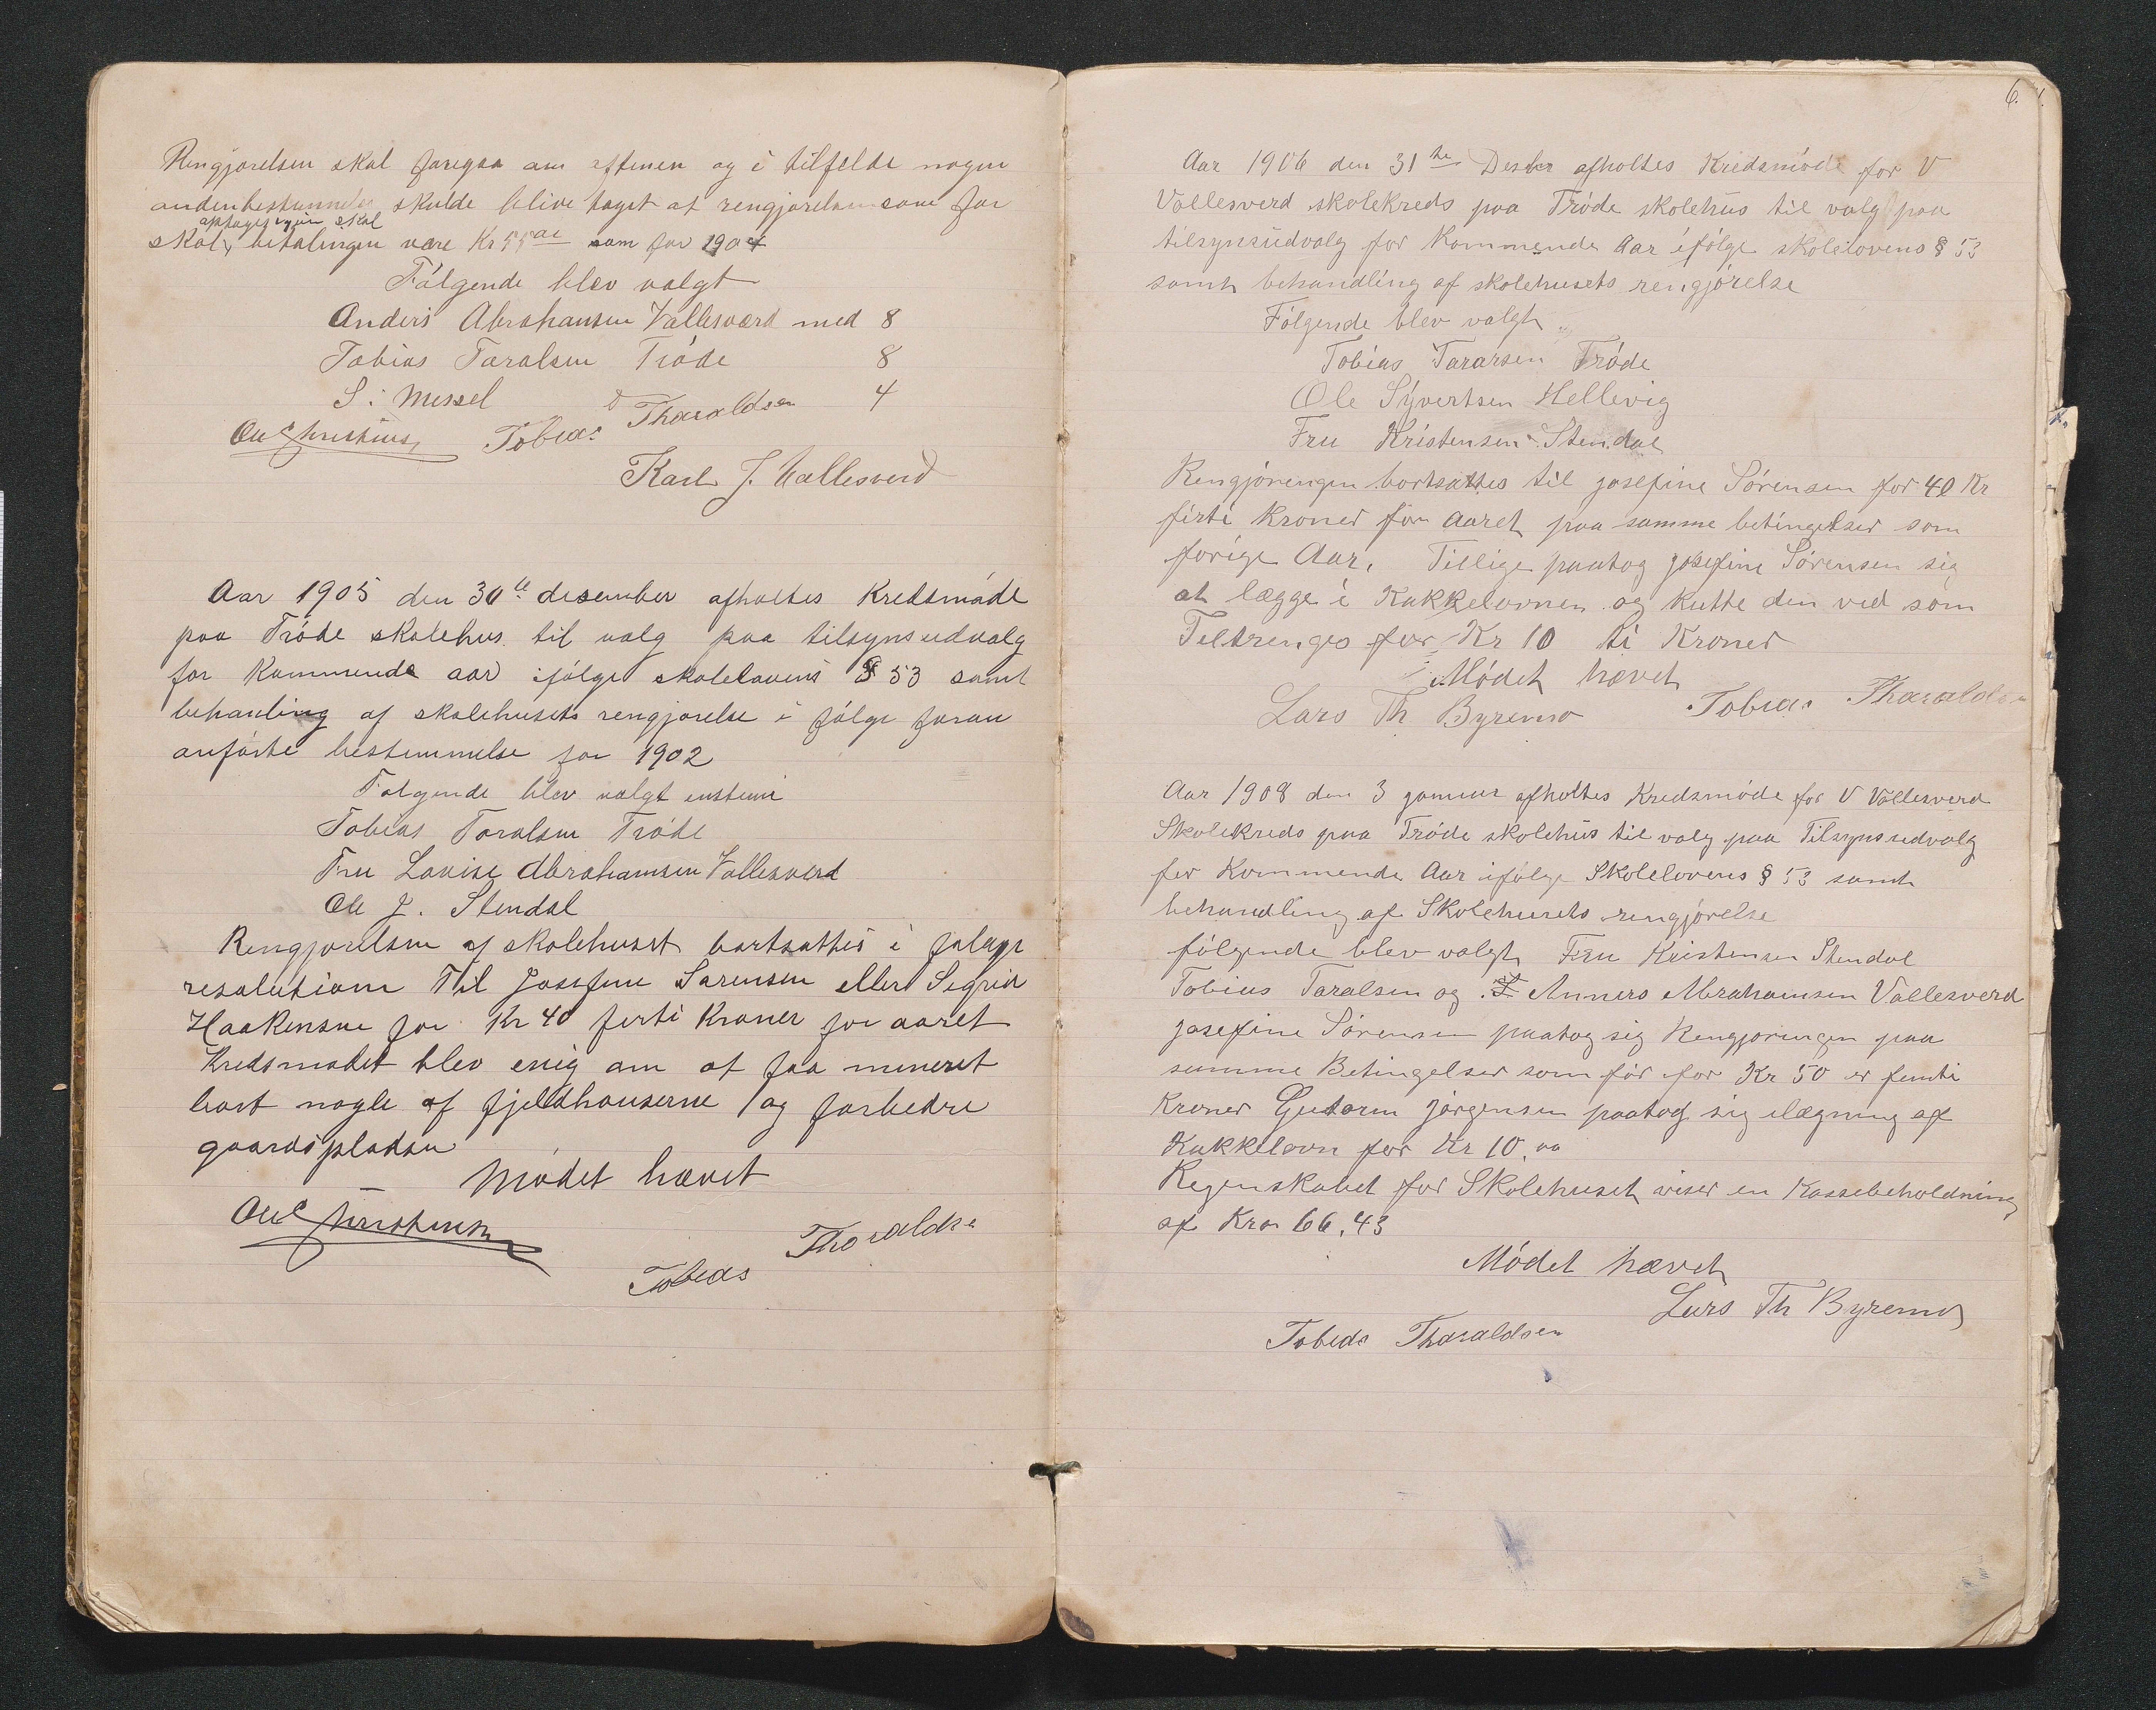 Rengjorelsen skal foregaa om aftenen og i tilfelde nogen
anden bestemmelse skulde blive taget at rengjorelsen som for
optages igjen skal
skal betalingen være Kr 55 som for 1904
Følgende blev valgt
Anders Abrahamsen Vallesværd med 8
Tobias Taralsen Tróde 8
S: Messel 4
Ole Christensen Tobias Tharaldsen
Karl J. Vallesverd
Aar 1905 den 30te desember afholtes Kredsmøde
paa Tróde skolehus til valg paa tilsynsudvalg
for Kommende aar ifølge skolelovens § 53 samt
behanling af skolehusets rengjorelse i følge foran
anførte bestemmelse for 1902
Følgende blev valgt enstemi
Tobias Taralsen Tróde
Fru Lovise Abrahamsen Vallesverd
Ole J. Stendal
Rengjorelsen af skolehuset bortsattes i følge
resolutione Til Josefine Sørensen eller Segrid
Haakensne for Kr 40 ferti Kroner for aaret
Kredsmødet blev enig om at faa mineret
bort nogle af fjeldhauserne og forbedre
gaardspladsen
Mødet hævet
Ole Christensen
Tobias Tharaldsen
6.
Aar 1906 den 31te Desber afholtes Kredsmóde for V
Vallesverd skolekreds paa Tróde skolehus til valg paa
tilsynsudvalg for Kommende Aar ifólge skolelovens § 53
samt behandling af skolehusets rengjórelse
Fólgende blev valgt
Tobias Tararsen Tróde
Ole Syvertsen Hellevig
Fru Kristensen Stendal
Rengjórengen bortsattes til josefine Sórensen for 40 Kr
firti Kroner for Aaret paa samme betingelser som
forige Aar. Tillige paatog josefine Sórensen sig
at lægge i Kakkelovnen og kutte den ved som
Teltrenges for Kr 10 ti Kroner
Módet hævet
Lars Th Byremo Tobias Tharaldsen
Aar 1908 den 3 januar afholtes Kredsmóde for V Vallesverd
Skolekreds paa Tróde skolehus til valg paa Tilsynsudvalg
for Kommende Aar ifólge Skolelovens § 53 samt
behandling af Skolehusets rengjórelse
fólgende blev valgt Fru Kristensen Stendal
Tobias Taralsen og Anners Abrahamsen Vallesverd
josefine Sórensen paatog sig Rengjoringen paa
samme Betingelser som fór for Kr 50 er femti
Kroner Gutorm jórgensen paatog sig ilægning af
Kakkelovn for Kr 10,00
Regenskabet for Skolehuset viser en Kassebeholdning
af Kro 66,43
Módet hævet
Lars Th Byremo
Tobias Tharaldsen